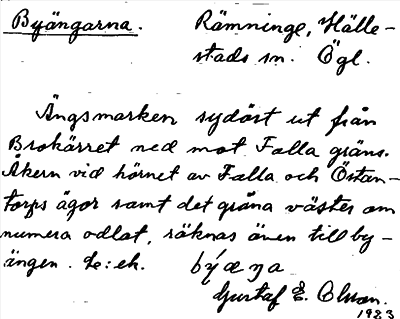 Byängarna. Rämninge, Hälle-
stads sn. Ögl.
Ängsmarken sydöst ut från
Brokärret ned mot Falla gräns.
Åkern vid hörnet av Falla och Östan-
torps ägor samt det gröna väster om
numera odlat, räknas även till by-
ängen. Le: ek. býæŋa
Gustaf E. Olson.
1923